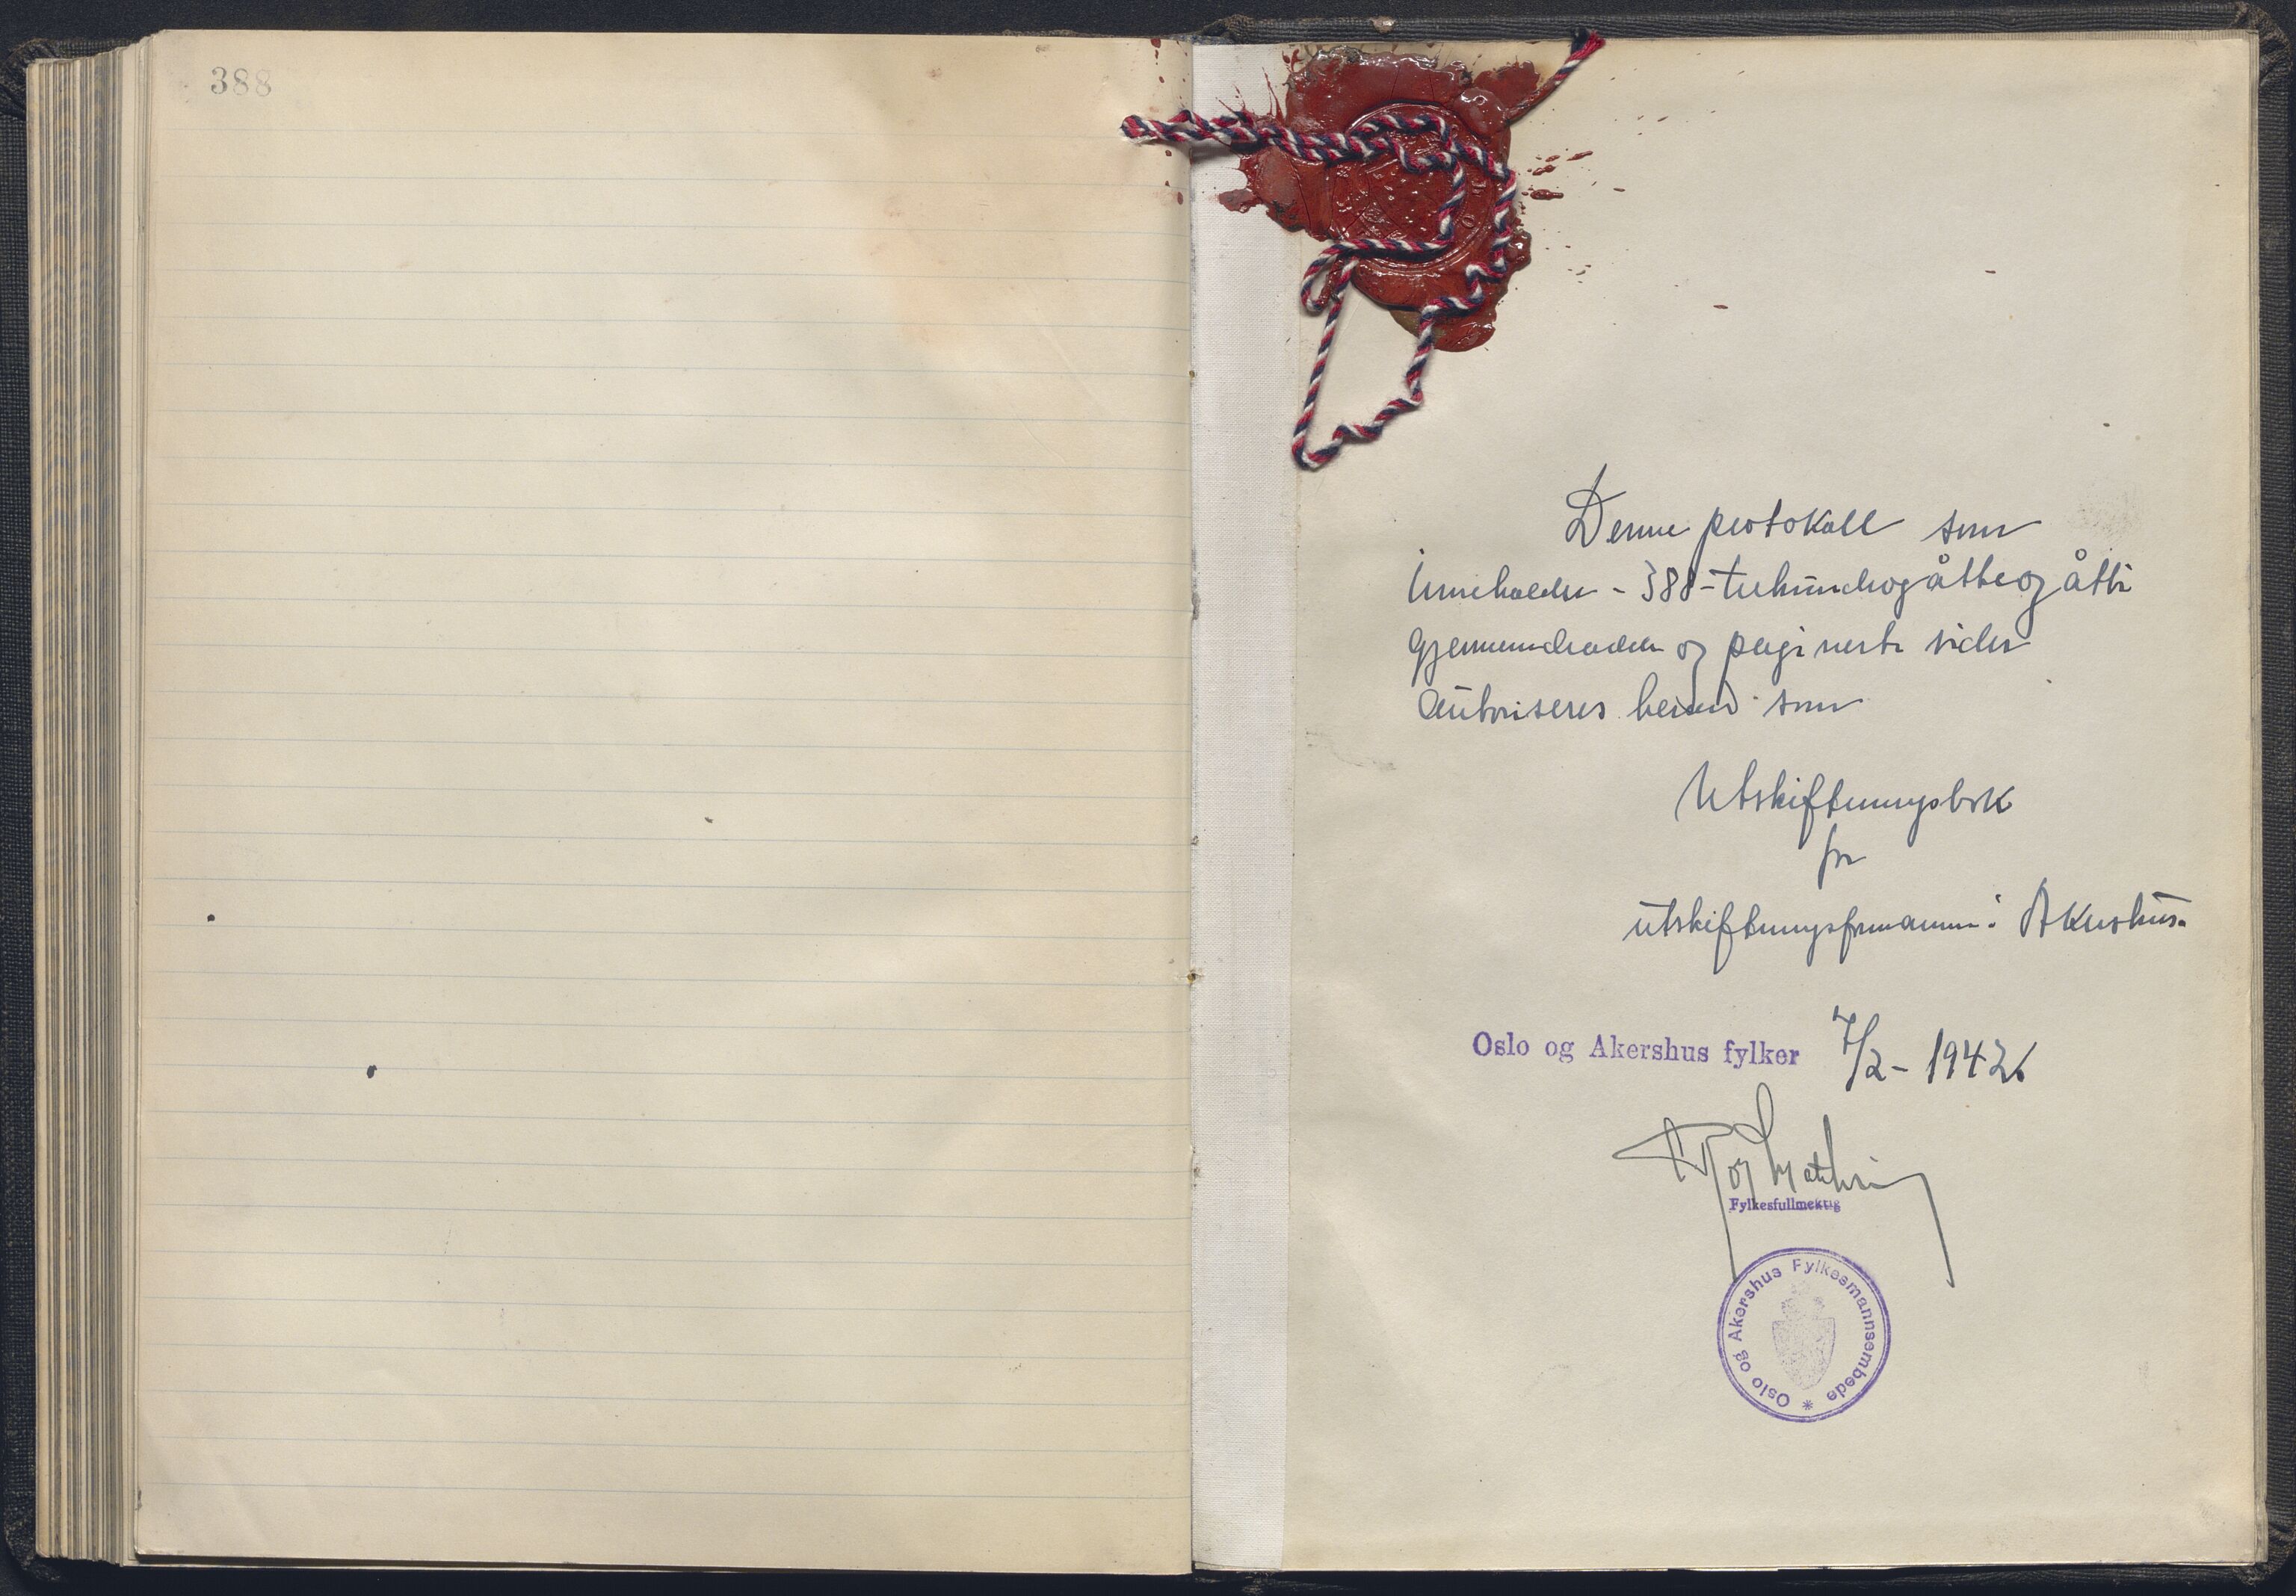 388
Denne protokoll som
inneholder - 388 - trehundreogåtteogåtti
gjennemdradde og paginerte sider
autoriseres herved som
Utskiftningsbok
for
utskiftningsformannen i Akershus.
Oslo og Akershus fylker 7/2 - 1942
Fylkesfullmektig
Oslo og Akershus Fylkesmannsembede *